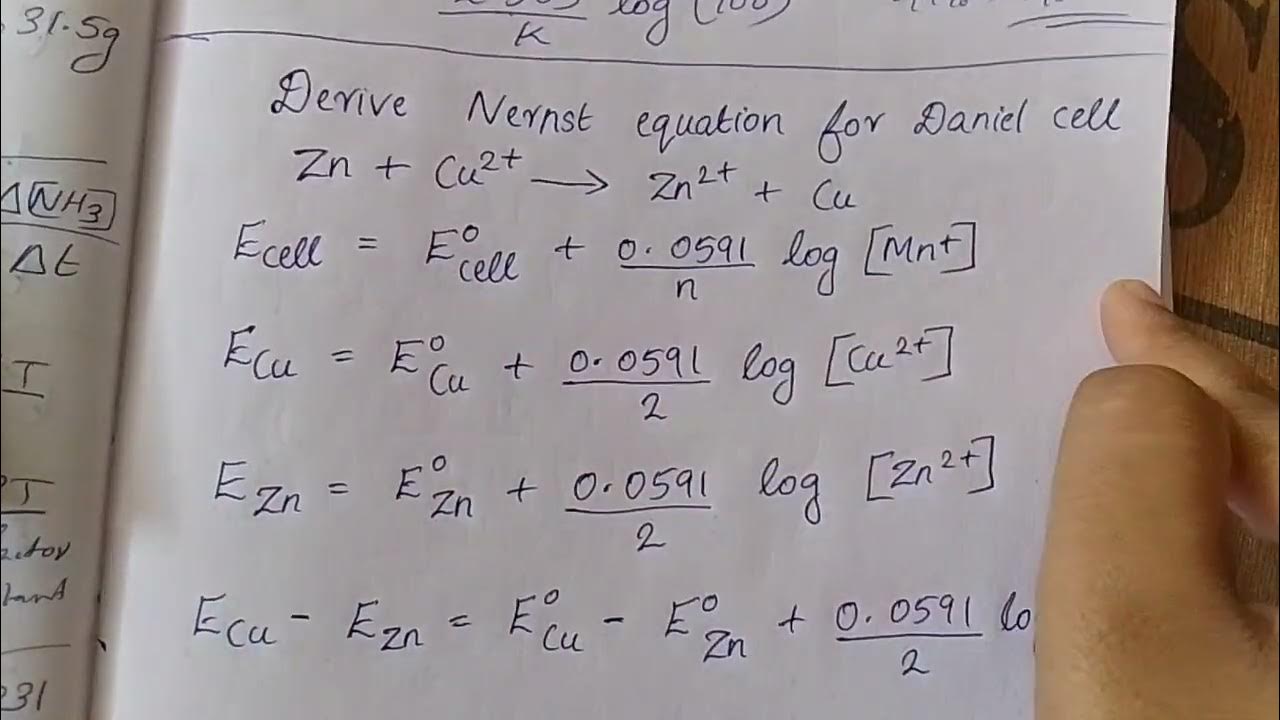 31.5g
K log (100)
Derive Nernst equation for Daniel cell
Zn + Cu²⁺ → Zn²⁺ + Cu
E cell = E⁰ cell + 0.0591/n log [Mn+]
E Cu = E⁰ Cu + 0.0591/2 log [Cu²⁺]
E Zn = E⁰ Zn + 0.0591/2 log [Zn²⁺]
E Cu - E Zn = E⁰ Cu - E⁰ Zn + 0.0591/2 lo
Δ[NH₃]
Δt
I
31